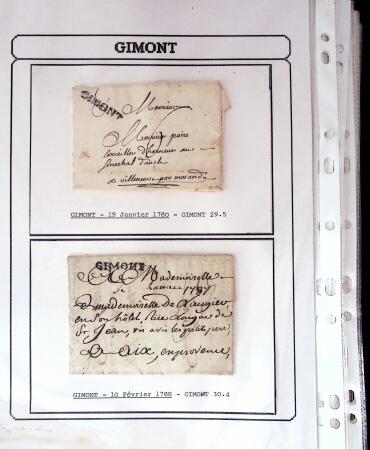 GIMONT
GIMONT
Monsieur
Monsieur
conseiller d'honneur au
senechal d'auch
a villeneuve par mirande
GIMONT - 19 Janvier 1780 - GIMONT 29.5
GIMONT
A Mademoiselle
1787
Mademoiselle De Laugier,
en son hôtel, Rue Longue de
St Jean, vis avis les petits pere,
A aix, en provence,
GIMONT - 10 Février 1788 - GIMONT 30.4